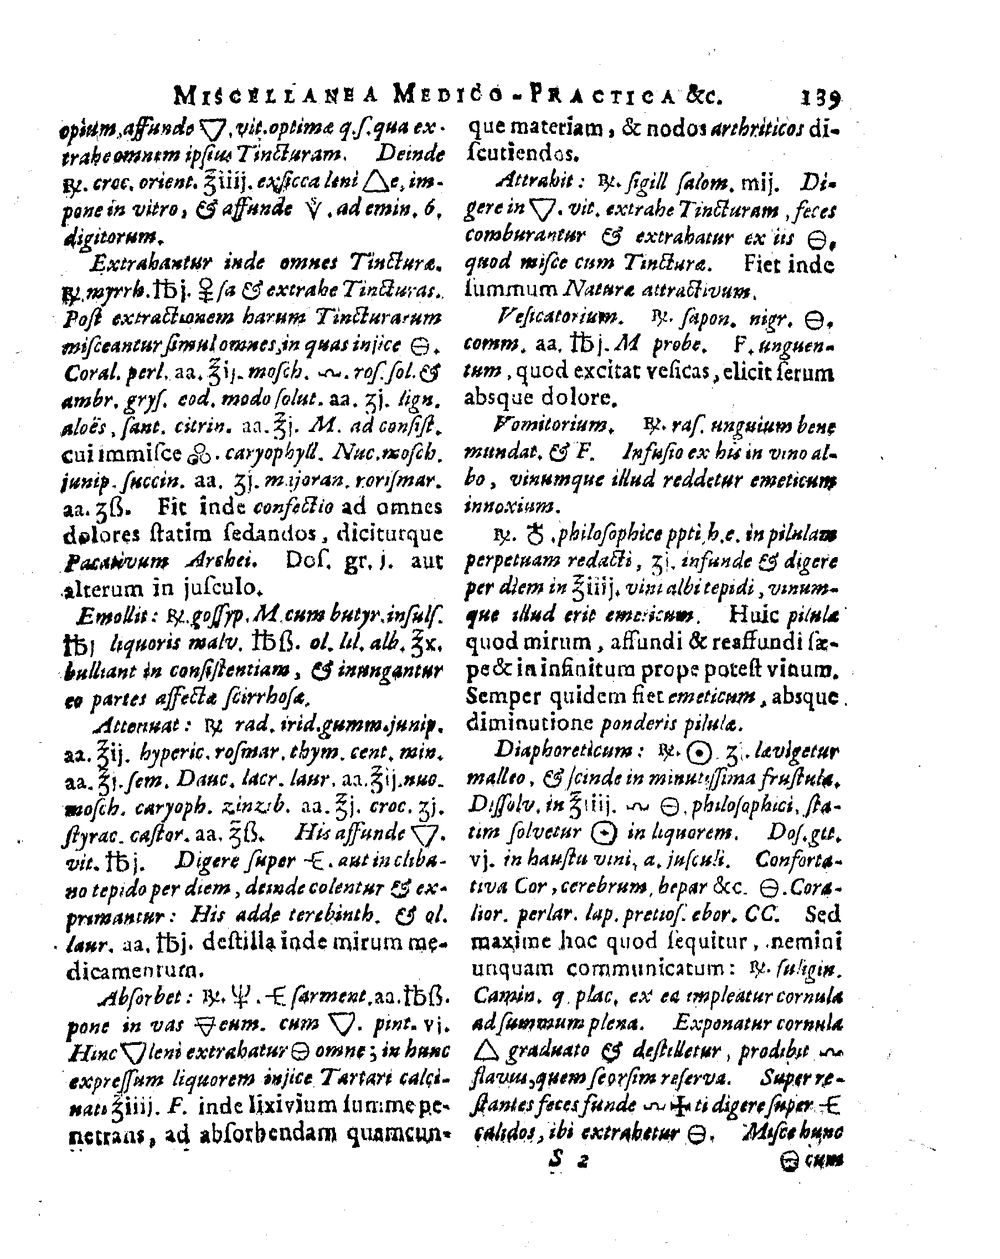 MISCELLANEA MEDICO-PRACTICA &c. 139
opium, affunde 🜄, vit. optimæ q. ſ. qua ex-
trahe omnem ipſius Tincturam. Deinde
℞. croc. orient. ℥iiij. exſicca leni 🜂e, im-
pone in vitro, & affunde . ad emin. 6.
digitorum.
Extrahantur inde omnes Tincturæ.
℞. myrrh. ℔j. ♀ſa & extrahe Tincturas.
Poſt extractionem harum Tincturarum
miſceantur ſimul omnes, in quas injice 🜔.
Coral. perl. aa. ℥ij. moſch. ~. roſ. ſol. &
ambr. gryſ. eod. modo ſolut. aa. ʒj. lign.
aloës, ſant. citrin. aa. ℥j. M. ad conſiſt.
cui immiſce . caryophyll. Nuc. moſch.
junip. ſuccin. aa. ʒj. majoran. roriſmar.
aa. ʒß. Fit inde confectio ad omnes
dolores ſtatim ſedandos, diciturque
Pacativum Archei. Doſ. gr. j. aut
alterum in juſculo.
Emollit: ℞. goſſyp. M. cum butyr. inſulſ.
℔j liquoris malv. ℔ß. ol. lil. alb. ℥x.
bulliant in conſiſtentiam, & inungantur
eo partes affectæ ſcirrhoſæ.
Attenuat: ℞ rad. irid. gumm. junip.
aa. ℥ij. hyperic. roſmar. thym. cent. min.
aa. ℥j. ſem. Dauc. lacr. laur. aa. ℥ij. nuc.
moſch. caryoph. zinzib. aa. ℥j. croc. ʒj.
ſtyrac. caſtor. aa. ℥ß. His affunde 🜄.
vit. ℔j. Digere ſuper . aut in cliba-
no tepido per diem, deinde colentur & ex-
primantur: His adde terebinth. & ol.
laur. aa. ℔j. deſtilla inde mirum me-
dicamentum.
Abſorbet: ℞. Ψ. ſarment. aa. ℔ß.
pone in vas 🜃eum. cum 🜄. pint. vj.
Hinc 🜄 leni extrahatur 🜔 omne; in hunc
expreſſum liquorem injice Tartari calci-
nati ℥iiij. F. inde lixivium ſumme pe-
netrans, ad abſorbendam quamcun-
que materiam, & nodos arthriticos di-
ſcutiendos.
Attrahit: ℞. ſigill ſalom. mij. Di-
gere in 🜄. vit. extrahe Tincturam, feces
comburantur & extrahatur ex iis 🜔,
quod miſce cum Tincturæ. Fiet inde
ſummum Naturæ attractivum.
Veſicatorium. ℞. ſapon. nigr. 🜔.
comm. aa. ℔j. M probe. F. unguen-
tum, quod excitat veſicas, elicit ſerum
absque dolore.
Vomitorium. ℞. raſ. unguium bene
mundat. & F. Infuſio ex his in vino al-
bo, vinumque illud reddetur emeticum
innoxium.
℞. ♁. philoſophice ppti, h. e. in pilulam
perpetuam redacti, ʒj. infunde & digere
per diem in ℥iiij. vini albi tepidi, vinum-
que illud erit emericum. Huic pilulæ
quod mirum, affundi & reaffundi ſæ-
pe & in infinitum prope poteſt vinum.
Semper quidem fiet emeticum, absque
diminutione ponderis pilulæ.
Diaphoreticum: ℞. ☉. ʒj. lævigetur
malleo, & ſcinde in minutiſſima fruſtula.
Diſſolv. in ℥iiij. ~ 🜔. philoſophici, ſta-
tim ſolvetur ☉ in liquorem. Doſ. gtt.
vj. in hauſtu vini, a. juſculi. Conforta-
tiva Cor, cerebrum, hepar &c. 🜔. Cora-
lior. perlar. lap. pretioſ. ebor. CC. Sed
maxime hoc quod ſequitur, nemini
unquam communicatum: ℞. fuligin.
Camin. q. plac. ex ea impleatur cornula
ad ſummum plena. Exponatur cornula
🜂 graduato & deſtilletur, prodibit ~
flavus, quem ſeorſim reſerva. Super re-
ſtantes feces funde ~ ✠ti digere ſuper
calidos, ibi extrahetur 🜔. Miſce hunc
S 2
🜔 cum